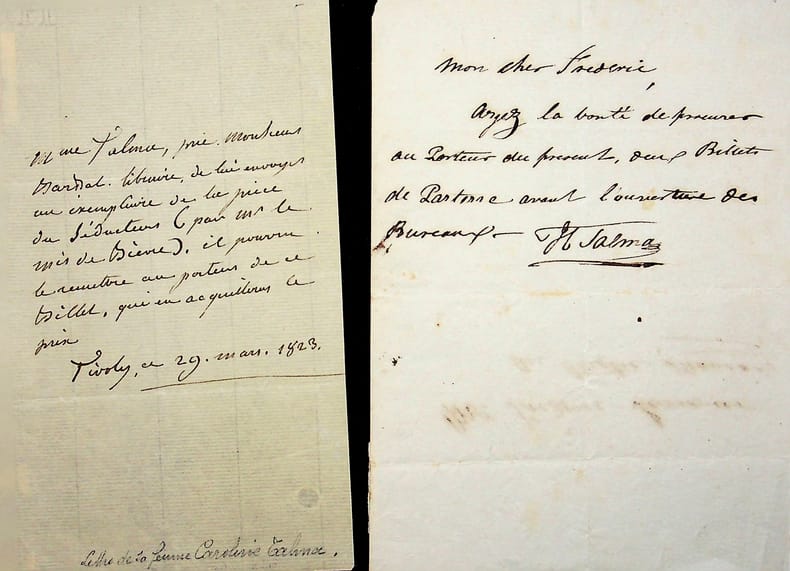 Mme Talma, prie Monsieur
Barbat. libraire, de lui envoyer
un exemplaire de la pièce
du Séducteur (par Mr le
mis de Bièvre), il pourra
le remettre au porteur de ce
Billet, qui en acquittera le
prix
Tivoly, ce 29. mars. 1823.
Lettre de sa femme Caroline Talma.
Mon cher Frederic,
Ayez la bonté de procurer
au Porteur du present, deux Billets
de Parterre avant l'ouverture des
Bureaux
Talma